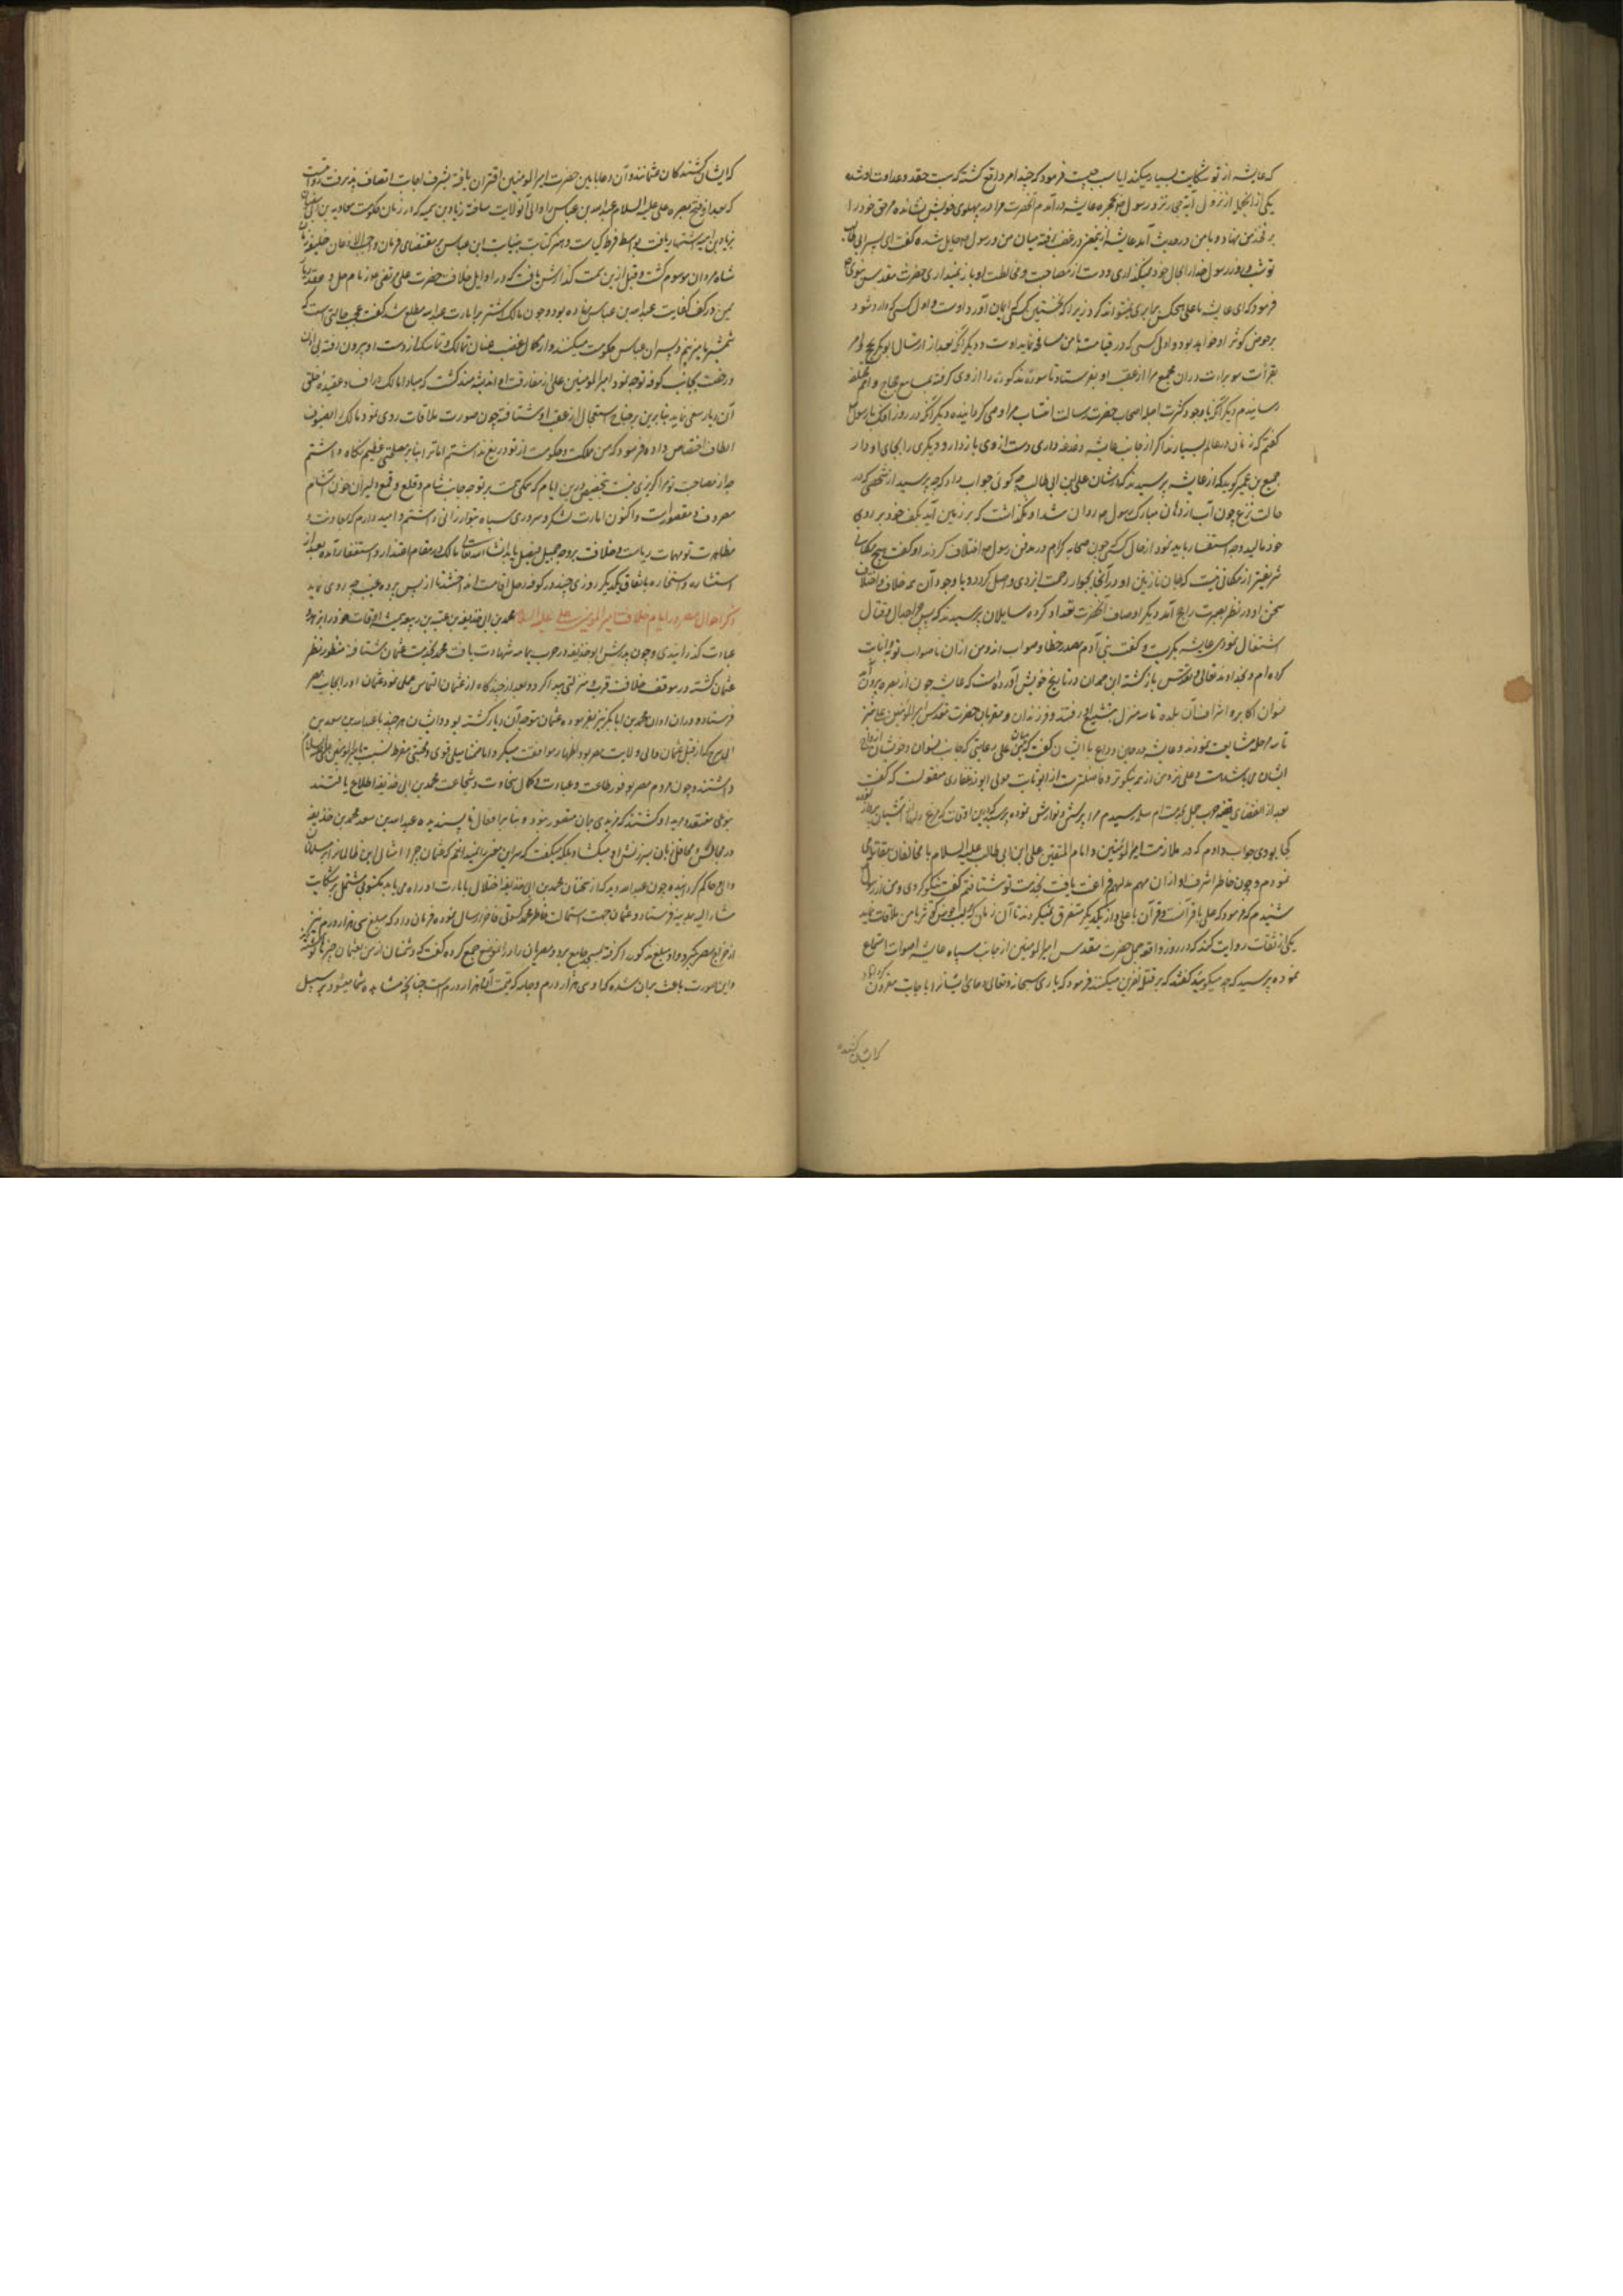 که عایشه از تو شکایت بسیار میکند ایا سبب چیست فرمود که چند امر واقع گشته که سبب حقد و عداوت او شده
یکی از انجا از نزول آیه روزی رسول در حجره عایشه در آمدم آنحضرت مرا در پهلوی خویش نشانده مرفق خود را
بر فخذ من نهاد و با من در حدیث آمد عایشه ازینمعنی در غضب رفته میان من و رسول حایل شده گفت ای پسر ابی طالب
تو شب و روز رسول خدا را بحال خود نمیگذاری و دست از مصاحبت و مخالطت او باز نمیداری حضرت مقدس نبوی
فرمود که ای عایشه با علی هیچکس برابری نمیتواند کرد زیرا که نخستین کسی که ایمان آورد اوست و اول کسی که وارد شود
بر حوض کوثر او خواهد بود و اول کسی که در قیامت با من مصافحه نماید اوست و دیگر آنکه بعد از ارسال ابوبکر بحج و امر
بقرأت سوره براءت در ان مجمع مرا از عقب او بفرستاد تا سوره مذکوره را از وی گرفته بمسامع حجاج
رسانیدم دیگر آنکه با وجود کثرت اجله اصحاب حضرت رسالت انتساب مرا وصی گردانیده و دیگر آنکه در روز افک با رسول
گفتم که زنان در عالم بسیارند اگر از جانب عایشه دغدغه داری دست از وی باز دار و دیگری را بجای او دار
جمیع بن عمیر گوید که از عایشه پرسیدند که در شان علی ابن ابی طالب چه گوئی جواب داد که چه پرسید از شخصی که در
حالت نزع چون آب از دهان مبارک رسول روان شد او نگذاشت که بر زمین آید بکف خود بر روی
خود مالید و چه استفسار باید نمود از حال کسی که چون صحابه کرام در مدفن رسول اختلاف کردند او گفت هیچ مکانی
شریفتر از مکانی نیست که جان نازنین او در آنجا بجوار رحمت ایزدی واصل گردد و با وجود آن همه خلاف و اختلاف
سخن او در نظر بصیرت راجح آمد و دیگر اوصاف آنحضرت تعداد کرده سایلان پرسیدند که پس چرا بجدال و قتال
اشتغال نمودی عایشه بگریست و گفت بنی آدم مصدر خطا و صواب اند و من از ان ناصواب توبه و انابت
کرده ام و بخداوند تعالی و تقدس بازگشته ابن همدان در تاریخ خویش آورده است که عایشه چون از بصره بیرون
نسوان اکابر و اشراف آن بلده تا سه منزل بتشییع او رفتند و فرزندان و مقربان حضرت مقدس امیر المؤمنین علی نیز
تا سه مرحله مشایعت نمودند و عایشه در حین وداع با ایشان گفت که میان علی رعایتی که جانب نسوان و خویشان ازواج
ایشان می باشد هست و علی نزد من از همه نیکوتر و فاضلترست از ابو ثابت مولی ابوذر غفاری منقولست که گفت
بعد از انقضای قضیه حرب جمل بخدمت ام سلمه رسیدم مرا پرسش و نوازش نموده پرسید که درین اوقات که مرغ دلها از آشیان پرواز
کجا بودی جواب دادم که در ملازمت امیر المؤمنین و امام المتقین علی ابن ابی طالب علیه السلام با مخالفان مقاتله
نمودم و چون خاطر اشرف او از ان مهم بلهم فراغت یافت بخدمت تو شتافتم گفت نیکو کردی و من از رسول
شنیدم که فرمود که علی با قرآنست و قرآن با علی و از یکدیگر متفرق نمیگردند تا آن زمان که بر لب حوض کوثر با من ملاقات نماید
یکی از ثقات روایت کند که در روز واقعه جمل حضرت مقدس امیر المومنین از جانب سپاه عایشه اصوات استماع
نموده پرسید که چه میگویند گفتند که بر قتله نفرین میکنند فرمود که باری سبحانه و تعالی دعای ایشانرا با اجابت مقرون
که ایشان کشنده
که ایشان کشندگان عثمانند و آن دعا بامین حضرت امیر المومنین اقتران یافته بشرف اجابت اتصاف پذیرفت روایت است
که بعد از فتح بصره علی علیه السلام عبدالله بن عباس را والی آنولایت ساخته زیاد بن سمیه که در زمان حکومت معاویه بن ابی سفیان
بزیاد بن ابیه اشتهار یافت بواسطه فرط کیاست و هنر کتابت بنیابت ابن عباس بر مقتضای فرمان واجب الاذعان خلیفه زمان
شاه مردان موسوم گشت و قبل ازین سمت گذارش یافت که در اوایل خلافت حضرت علی مرتضی زمام حل و عقد دیار
یمن در کف کفایت عبدالله بن عباس نهاده بود و چون مالک اشتر بر امارت عبدالله مطلع شد گفت عجب حالتی است که
شمشیر ما میزنیم و پسران عباس حکومت میکنند و از کمال غضب عنان تمالک و تماسک از دست او بیرون رفته بی اذن
و رخصت بجانب کوفه توجه نمود امیر المومنین علی از مفارقت او اندیشه مند گشت که مبادا مالک در افساد عقیده خلق
آن دیار سعی نماید بنابرین بر جناح استعجال از عقب او شتافته چون صورت ملاقات روی نمود مالک را بصنوف
الطاف اختصاص داده فرمود که من مملکت و حکومت از تو دریغ نداشتم اما ترا بنا بر مصلحتی عظیم نگاه داشتم
چه از مصاحبت تو مرا گزیری نیست بتخصیص درین ایام که همگی همت بر توجه جانب شام و قلع و قمع دلیران خون آشام
مصروف و مقصورست و اکنون امارت لشکر و سروری سپاه بتو ارزانی داشتم و امیدوارم که بمعاونت و
مظاهرت تو مهمات ریاست و خلافت بر وجه جمیل فیصل یابد انشا الله تعالی مالک در مقام اعتذار و استغفار آمده بعد از
استشاره و استخاره باتفاق یکدیگر روزی چند در کوفه رحل اقامت انداختند تا از پس پرده غیب چه روی نماید
ذکر احوال مصر در ایام خلافت امیر المومنین علی علیه السلام محمد بن ابی حذیفه بن عتبه بن ربیعه همیشه اوقات خود را بزهد و
عبادت گذرانیدی و چون پدرش ابو حذیفه در حرب یمامه شهادت یافت محمد بخدمت عثمان شتافته منظور نظر
عثمان گشته در موقف خلافت قرب و منزلتی پیدا کرد و بعد از چند گاه از عثمان التماس عملی نمود عثمان او را بجانب مصر
فرستاد و در ان اوان محمد بن ابابکر نیز بفرموده عثمان متوجه آن دیار گشته بود و ایشان هر چند با عبدالله بن سعد بن
ابی سرح که از قبل عثمان والی ولایت مصر بود اظهار موافقت میکردند اما ضمنا میلی قوی و محبتی مفرط نسبت بامیر المومنین علی
داشتند و چون مردم مصر بوفور طاعت و عبادت و کمال سخاوت و شجاعت محمد بن ابی حذیفه اطلاع یافتند
بنوعی معتقد و مرید او گشتند که مزیدی بران متصور نبود و بنا بر افعال ناپسندیده عبدالله بن سعد محمد بن حذیفه
در مجالس و محافل زبان بسرزنش او میگشاد بلکه میگفت که سر این معنی را نمیدانم که عثمان چرا امثال این ظالمانرا بر مسلمانان
والی و حاکم گردانیده چون عبدالله دید که از سخنان محمد بن ابی حذیفه اختلال بامارت او راه می یابد مکتوبی مشتمل بر شکایت
مشار الیه بمدینه فرستاد و عثمان جهت استمالت خاطر محمد کسوتی فاخر ارسال نموده فرمان داد که مبلغ سی هزار درم نیز
از خراج مصر بگیرد و او مبلغ مذکور را گرفته بمسجد جامع برد و مصریان را در آن موضع جمع کرده گفت که دشمنان از من بعثمان
و این صورت باعث بران شده که او سی هزار درم و جامه که قیمت آن هزار درم است چنانچه مشاهده شما میشود بر سبیل